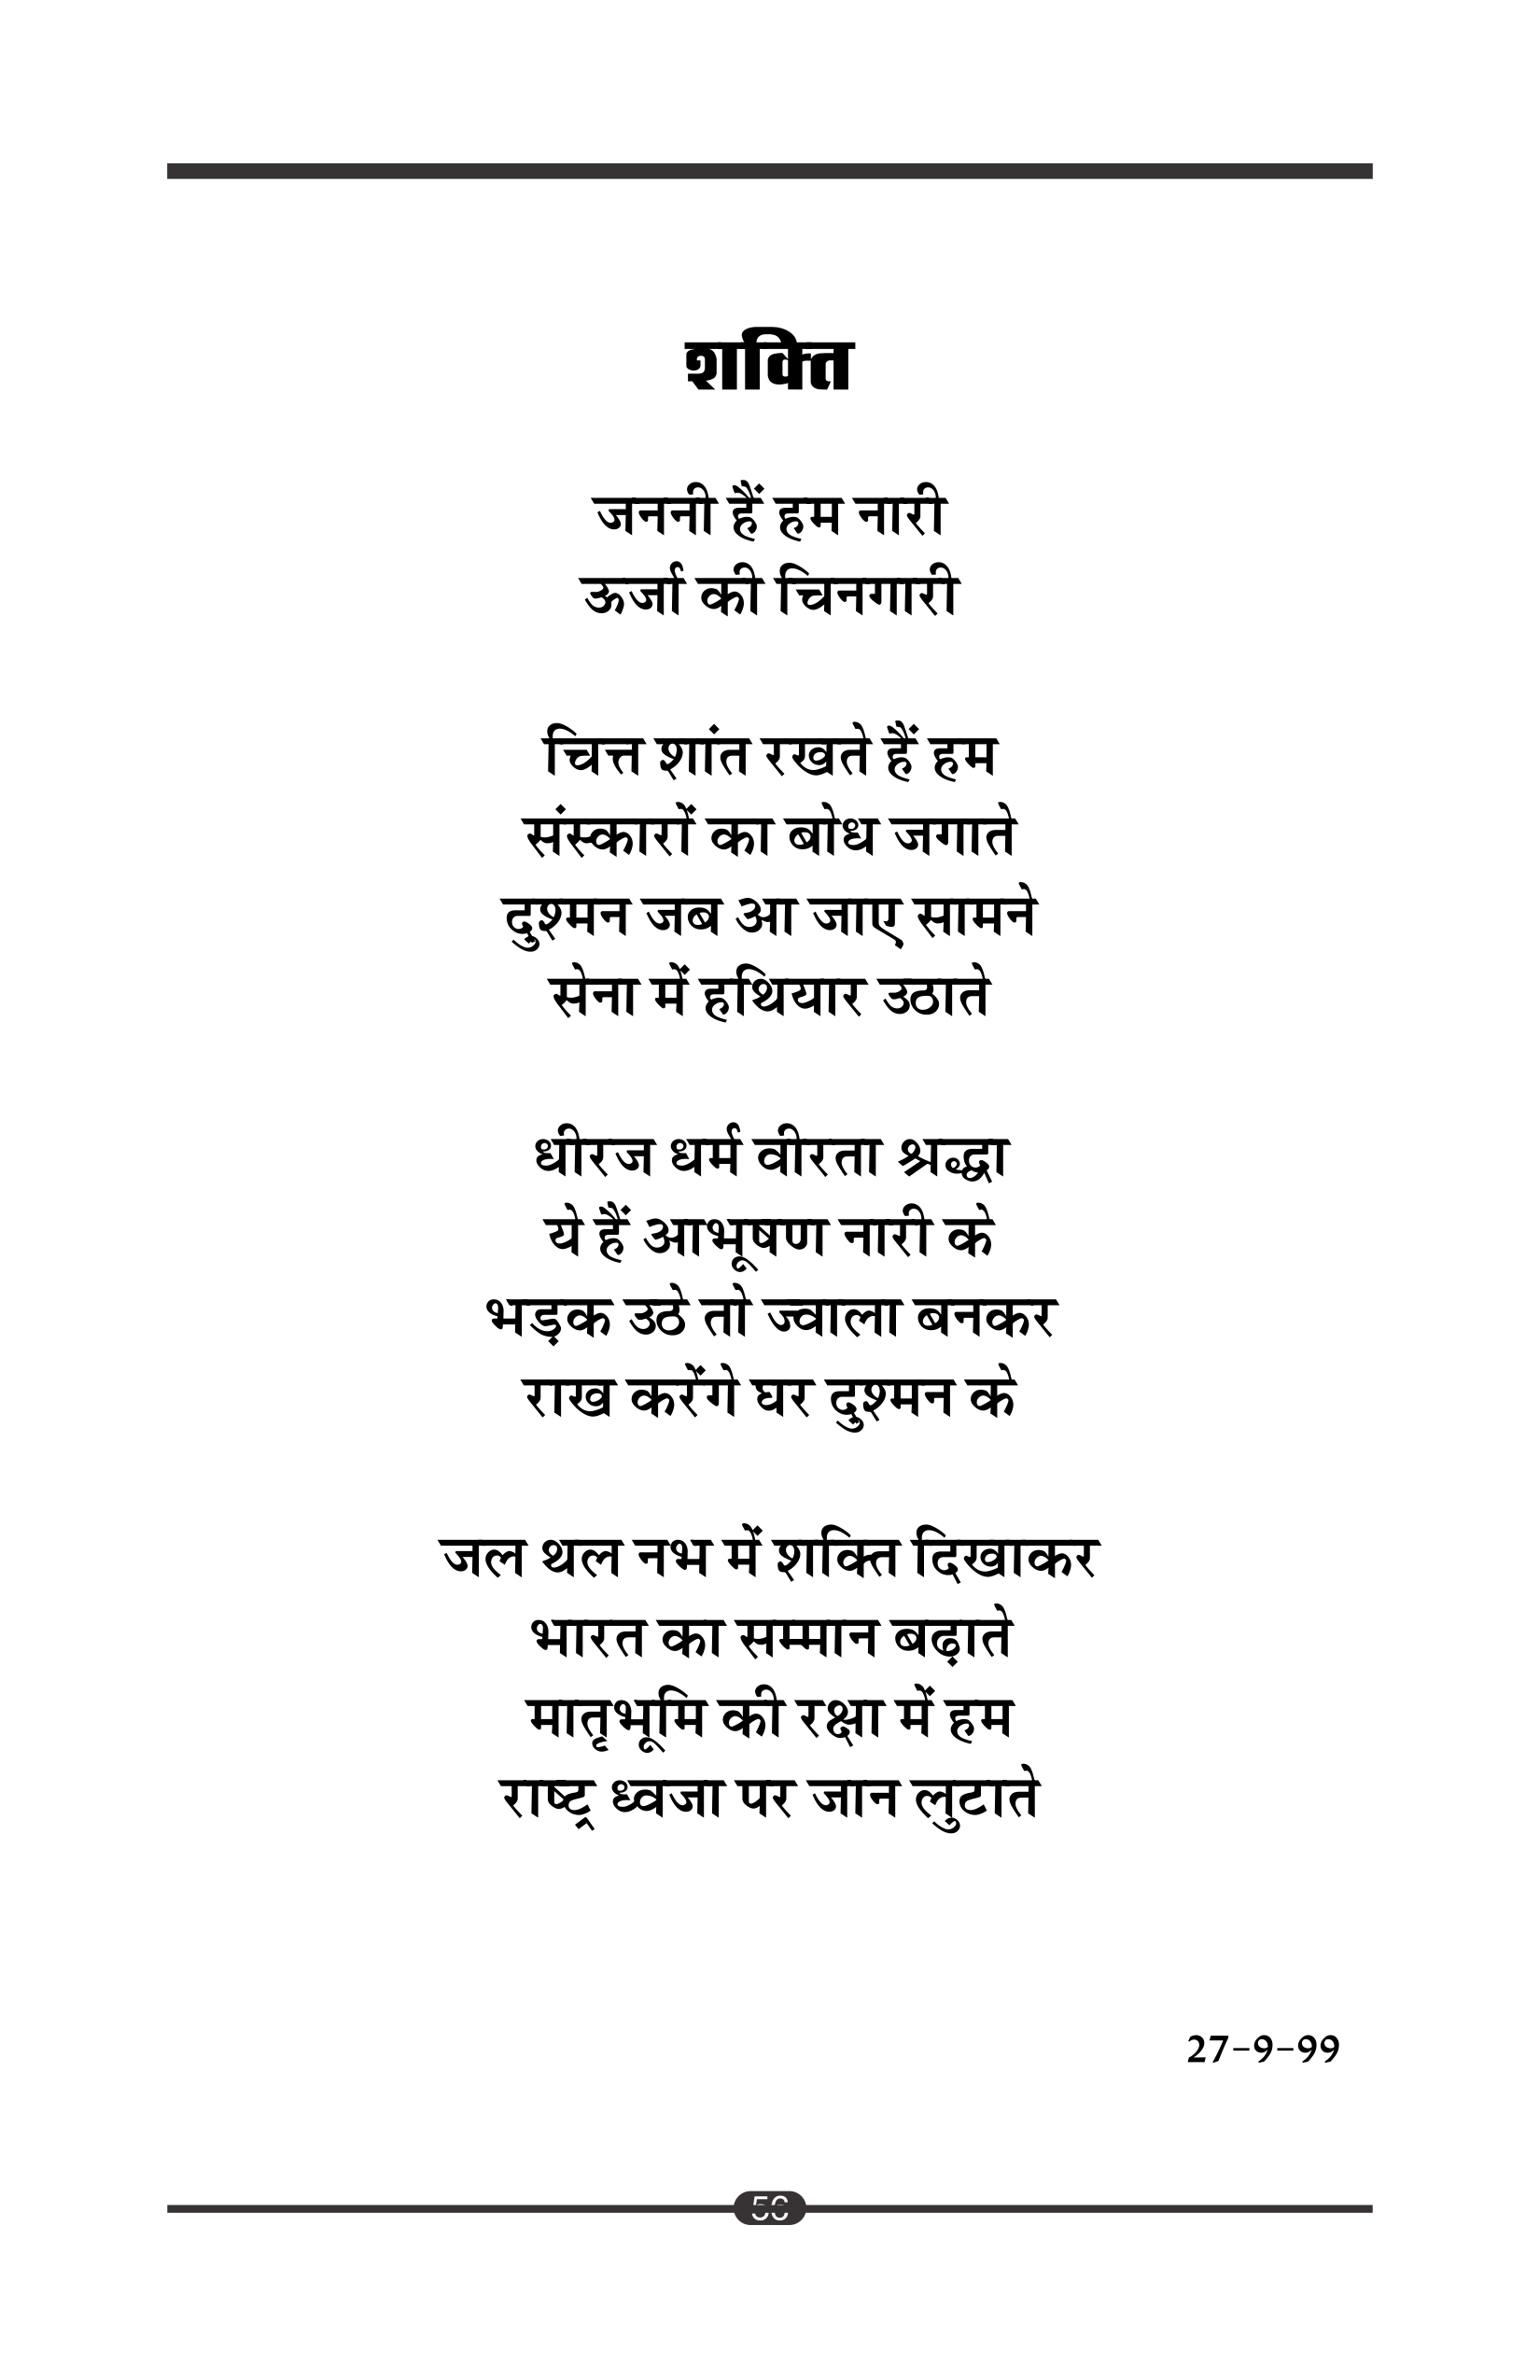 शक्ति
जननी हैं हम नारी
ऊर्जा की चिनगारी
चित्त शांत रखते हैं हम
संस्कारों का बोध जगाते
दुश्मन जब आ जाए सामने
सेना में हथियार उठाते
धीरज धर्म वीरता श्रद्धा
ये हैं आभूषण नारी के
भड़क उठे तो ज्वाला बनकर
राख करेंगे घर दुश्मन के
जल थल नभ में शक्ति दिखाकर
भारत का सम्मान बढ़ाते
मातृभूमि की रक्षा में हम
राष्ट्र ध्वजा पर जान लुटाते
27-9-99